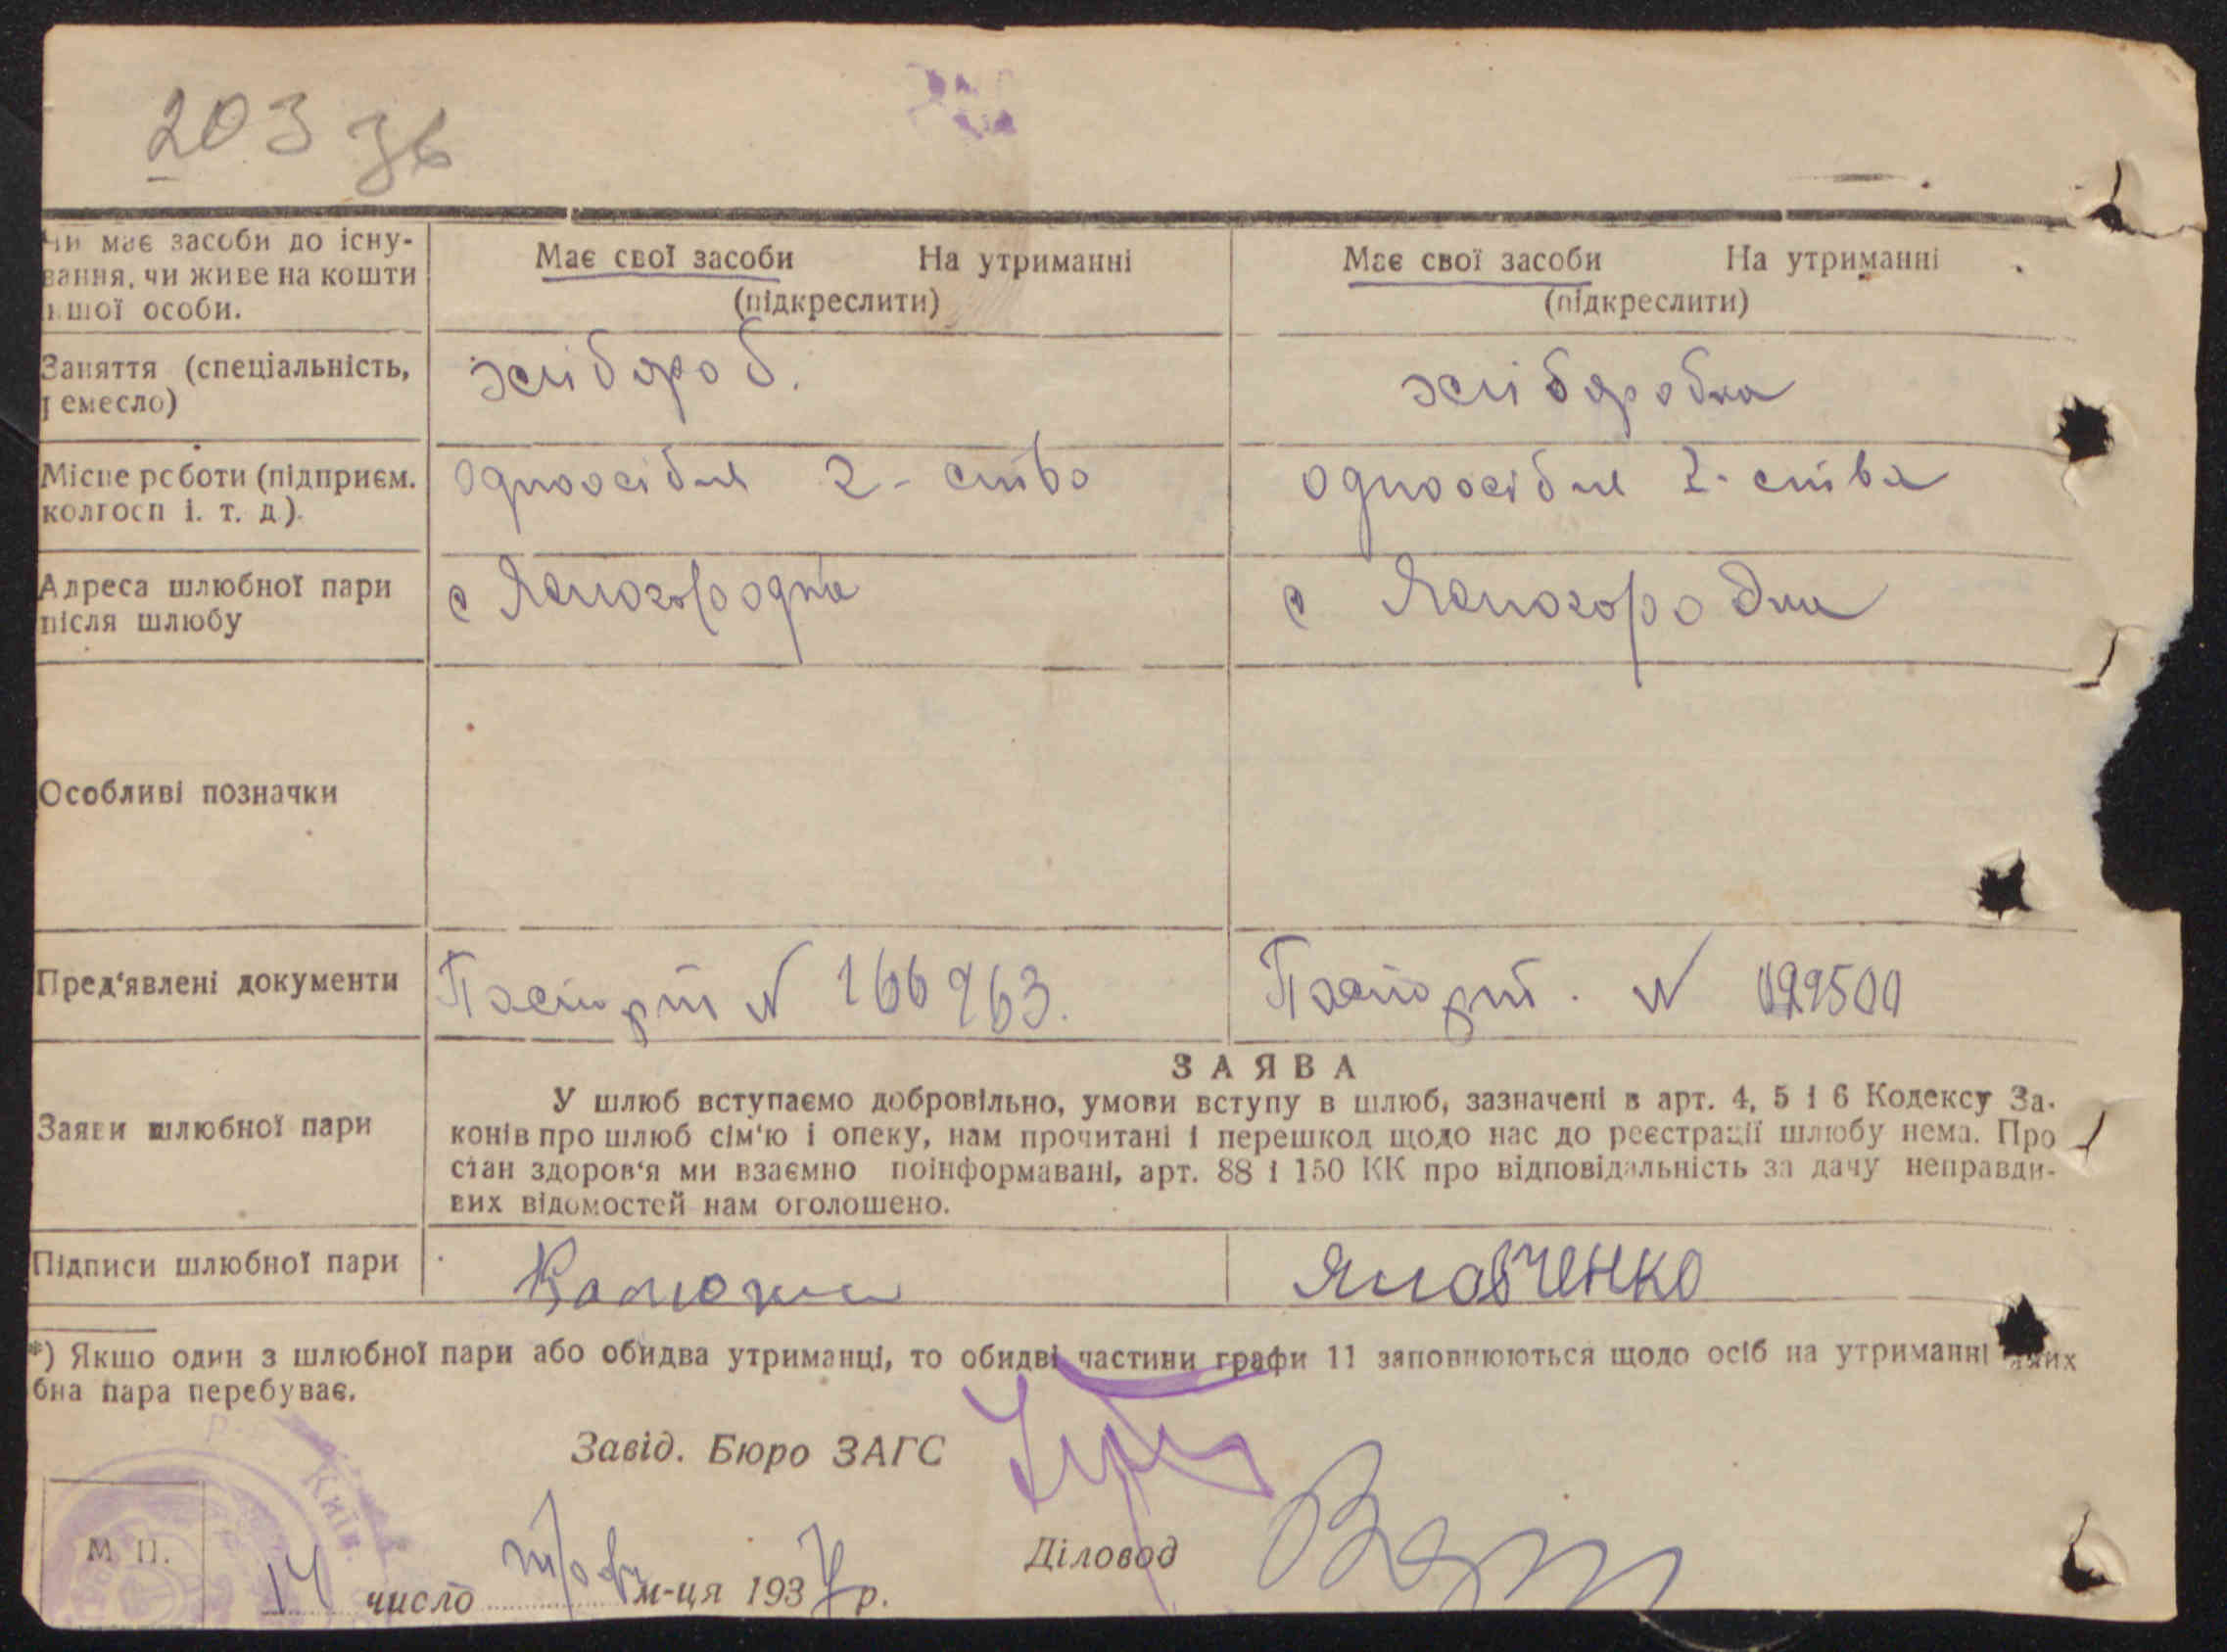 203 зв
Чи має засоби до існу-
вання, чи живе на кошти
іншої особи.
Має свої засоби На утриманні
(підкреслити)
Має свої засоби На утриманні
(підкреслити)
Заняття (спеціальність,
ремесло)
хлібороб.
хліборобка
Місце роботи (підприєм.
колгосп і. т. д.).
Одноосібне г-ство
одноосібне г-ства
Адреса шлюбної пари
після шлюбу
с Ясногородка
с Ясногородка
Особливі позначки
Пред'явлені документи
Паспорт N 166963.
Паспорт. N
Заяви шлюбної пари
ЗАЯВА
У шлюб вступаємо добровільно, умови вступу в шлюб, зазначені в арт. 4, 5 і 6 Кодексу За-
конів про шлюб сім'ю і опеку, нам прочитані і перешкод щодо нас до реєстрації шлюбу нема. Про
стан здоров'я ми взаємно поінформавані, арт. 88 і 150 КК про відповідальність за дачу неправди-
вих відомостей нам оголошено.
Підписи шлюбної пари
*) Якщо один з шлюбної пари або обидва утриманці, то обидві частини графи 11 заповнюються щодо осіб на утриманні яких
бна пара перебуває.
Завід. Бюро ЗАГС
Київ.
М П.
Діловод
14 число м-ця 1937 р.